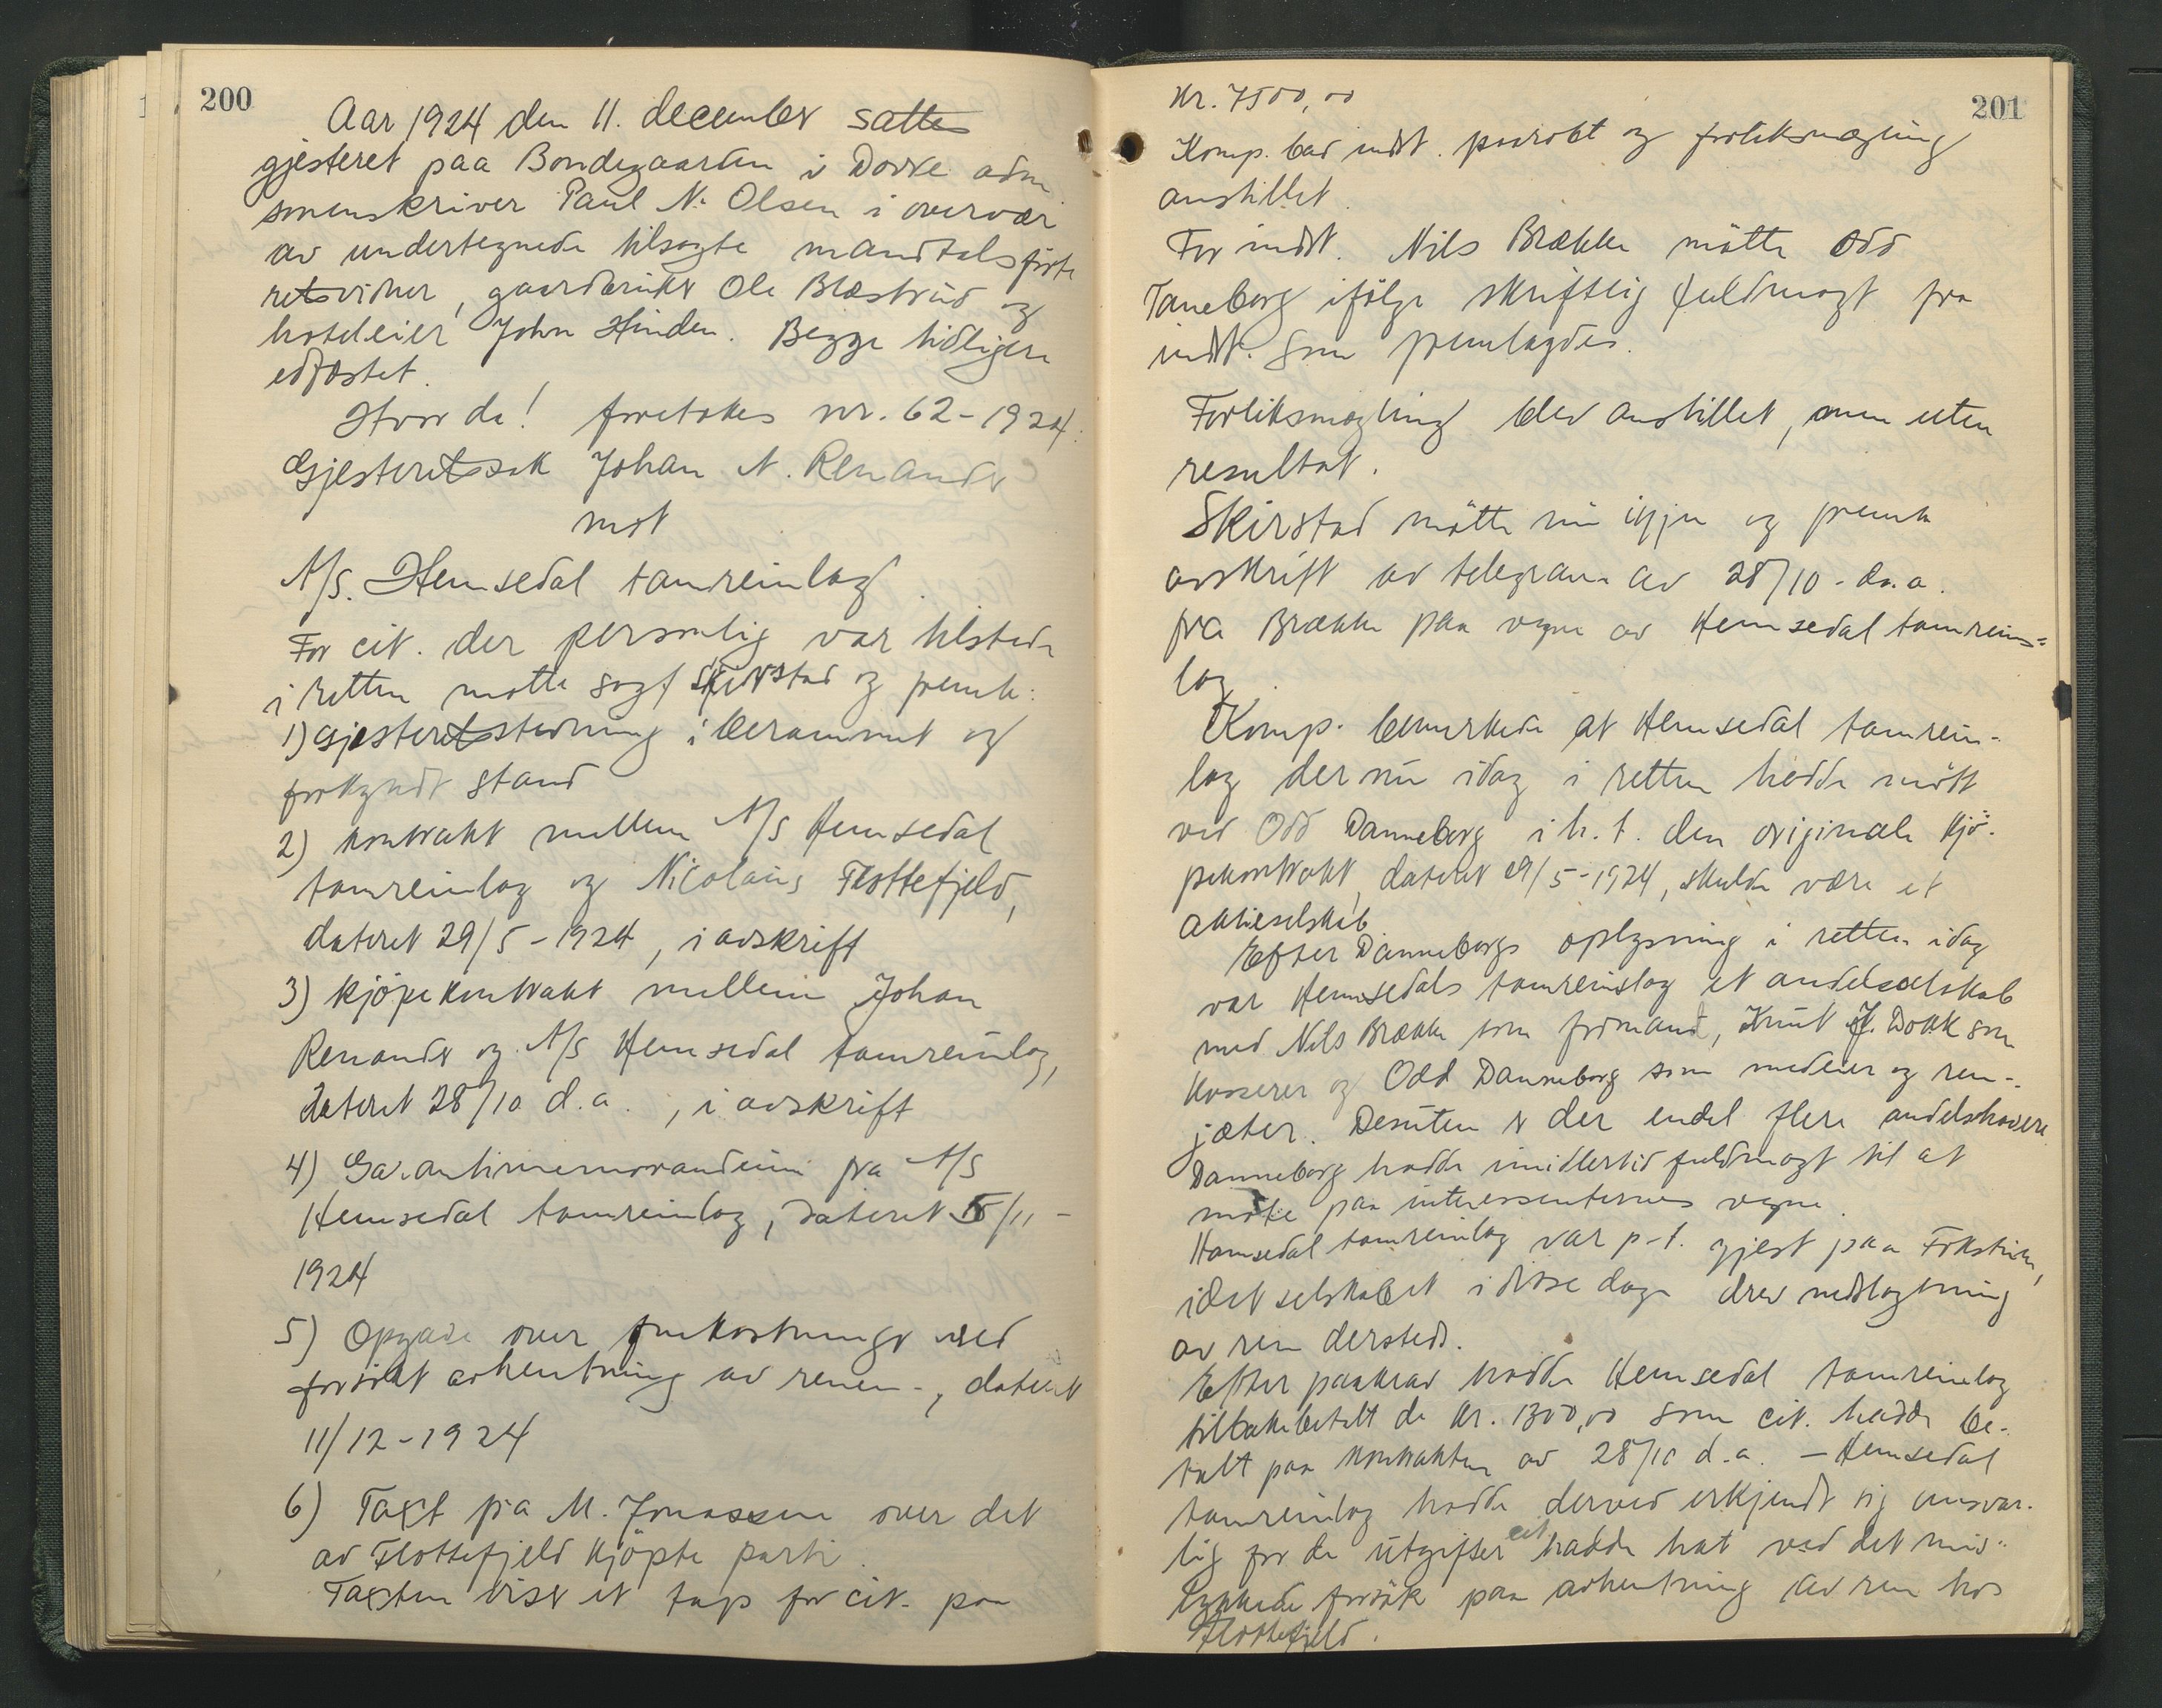 200
Aar 1924 den 11. december sattes
gjesteret paa Bondegaarden i Dovre adm
sorenskriver Paul N. Olsen i overvær
av undertegnede tilsagte mandtalsførte
retsvidner, gaardbruker Ole Blæstrud og
hoteleier John Hinden. Begge tidligere
edfæstet.
Hvorda! foretokes nr. 62-1924.
Gjesteretssak Johan N. Renander
mot
A/S. Hemsedal tamreinlag.
For cit. der personlig var tilstede
i retten møtte sagf Skirstad og freml:
1) Gjesteretsstevning i berammet og
forkyndt stand
2) Kontrakt mellem A/S Hemsedal
tamreinlag og Nicolaus Flottefjeld,
dateret 29/5-1924, i avskrift
3) kjöpekontrakt mellem Johan
Renander og A/S Hemsedal tamreinlag,
dateret 28/10 d.a., i avskrift
4) Garantimemorandum fra A/S
Hemsedal tamreinlag, dateret 5/11-
1924
5) Opgave over omkostninger ved
forsøkt avhentning av renen-, dateret
11/12-1924
6) Taxt fra M. Jonassen over det
av Flottefjeld kjöpte parti.
Taxten viser et tap for cit. paa
201
Kr. 7500,00
Komp. bad indst. paaropt og forliksmægling
anstillet.
For indst. Nils Brække mötte Odd
Daneborg ifölge skriftlig fuldmagt fra
indst. som fremlagdes.
Forliksmægling blev anstillet, men uten
resultat.
Skirstad mötte nu igjen og freml
avskrift av telegram av 28/10-d.a.
fra Brække paa vegne av Hemsedal tamreins=
lag.
Komp. bemerkede at Hemsedal tamrein-
lag der nu idag i retten hadde mött
ved Odd Danneborg i h. t. den originale kjö-
pekontrakt, dateret 29/5-1924, skulde være et
aktieselskab
Efter Danneborgs oplysning i retten idag
var Hemsedals tamreinslag et andelsselskab
med Nils Brække som formand, Knut J. Dokk som
kasserer og Odd Danneborg som medeier og ren-
jæter. Desuten er der endel flere andelshavere.
Danneborg hadde imidlertid fuldmagt til at
møte paa interessenternes vegne.
Hemsedal tamreinlag var p-t. gjest paa Fokstuen,
idet selskabet i disse dage drev nedslagtning
av ren dersteds.
Efter paakrav hadde Hemsedal tamreinlag
tilbakebetalt de kr. 1300,00 som cit. hadde be-
talt paa kontrakten av 28/10 d.a. - Hemsedal
tamreinlag hadde derved erkjendt sig ansvar-
lig for de utgifter cit. hadde hat ved det mis-
lykkede forsök paa avhentning av ren hos
Flottefjeld.